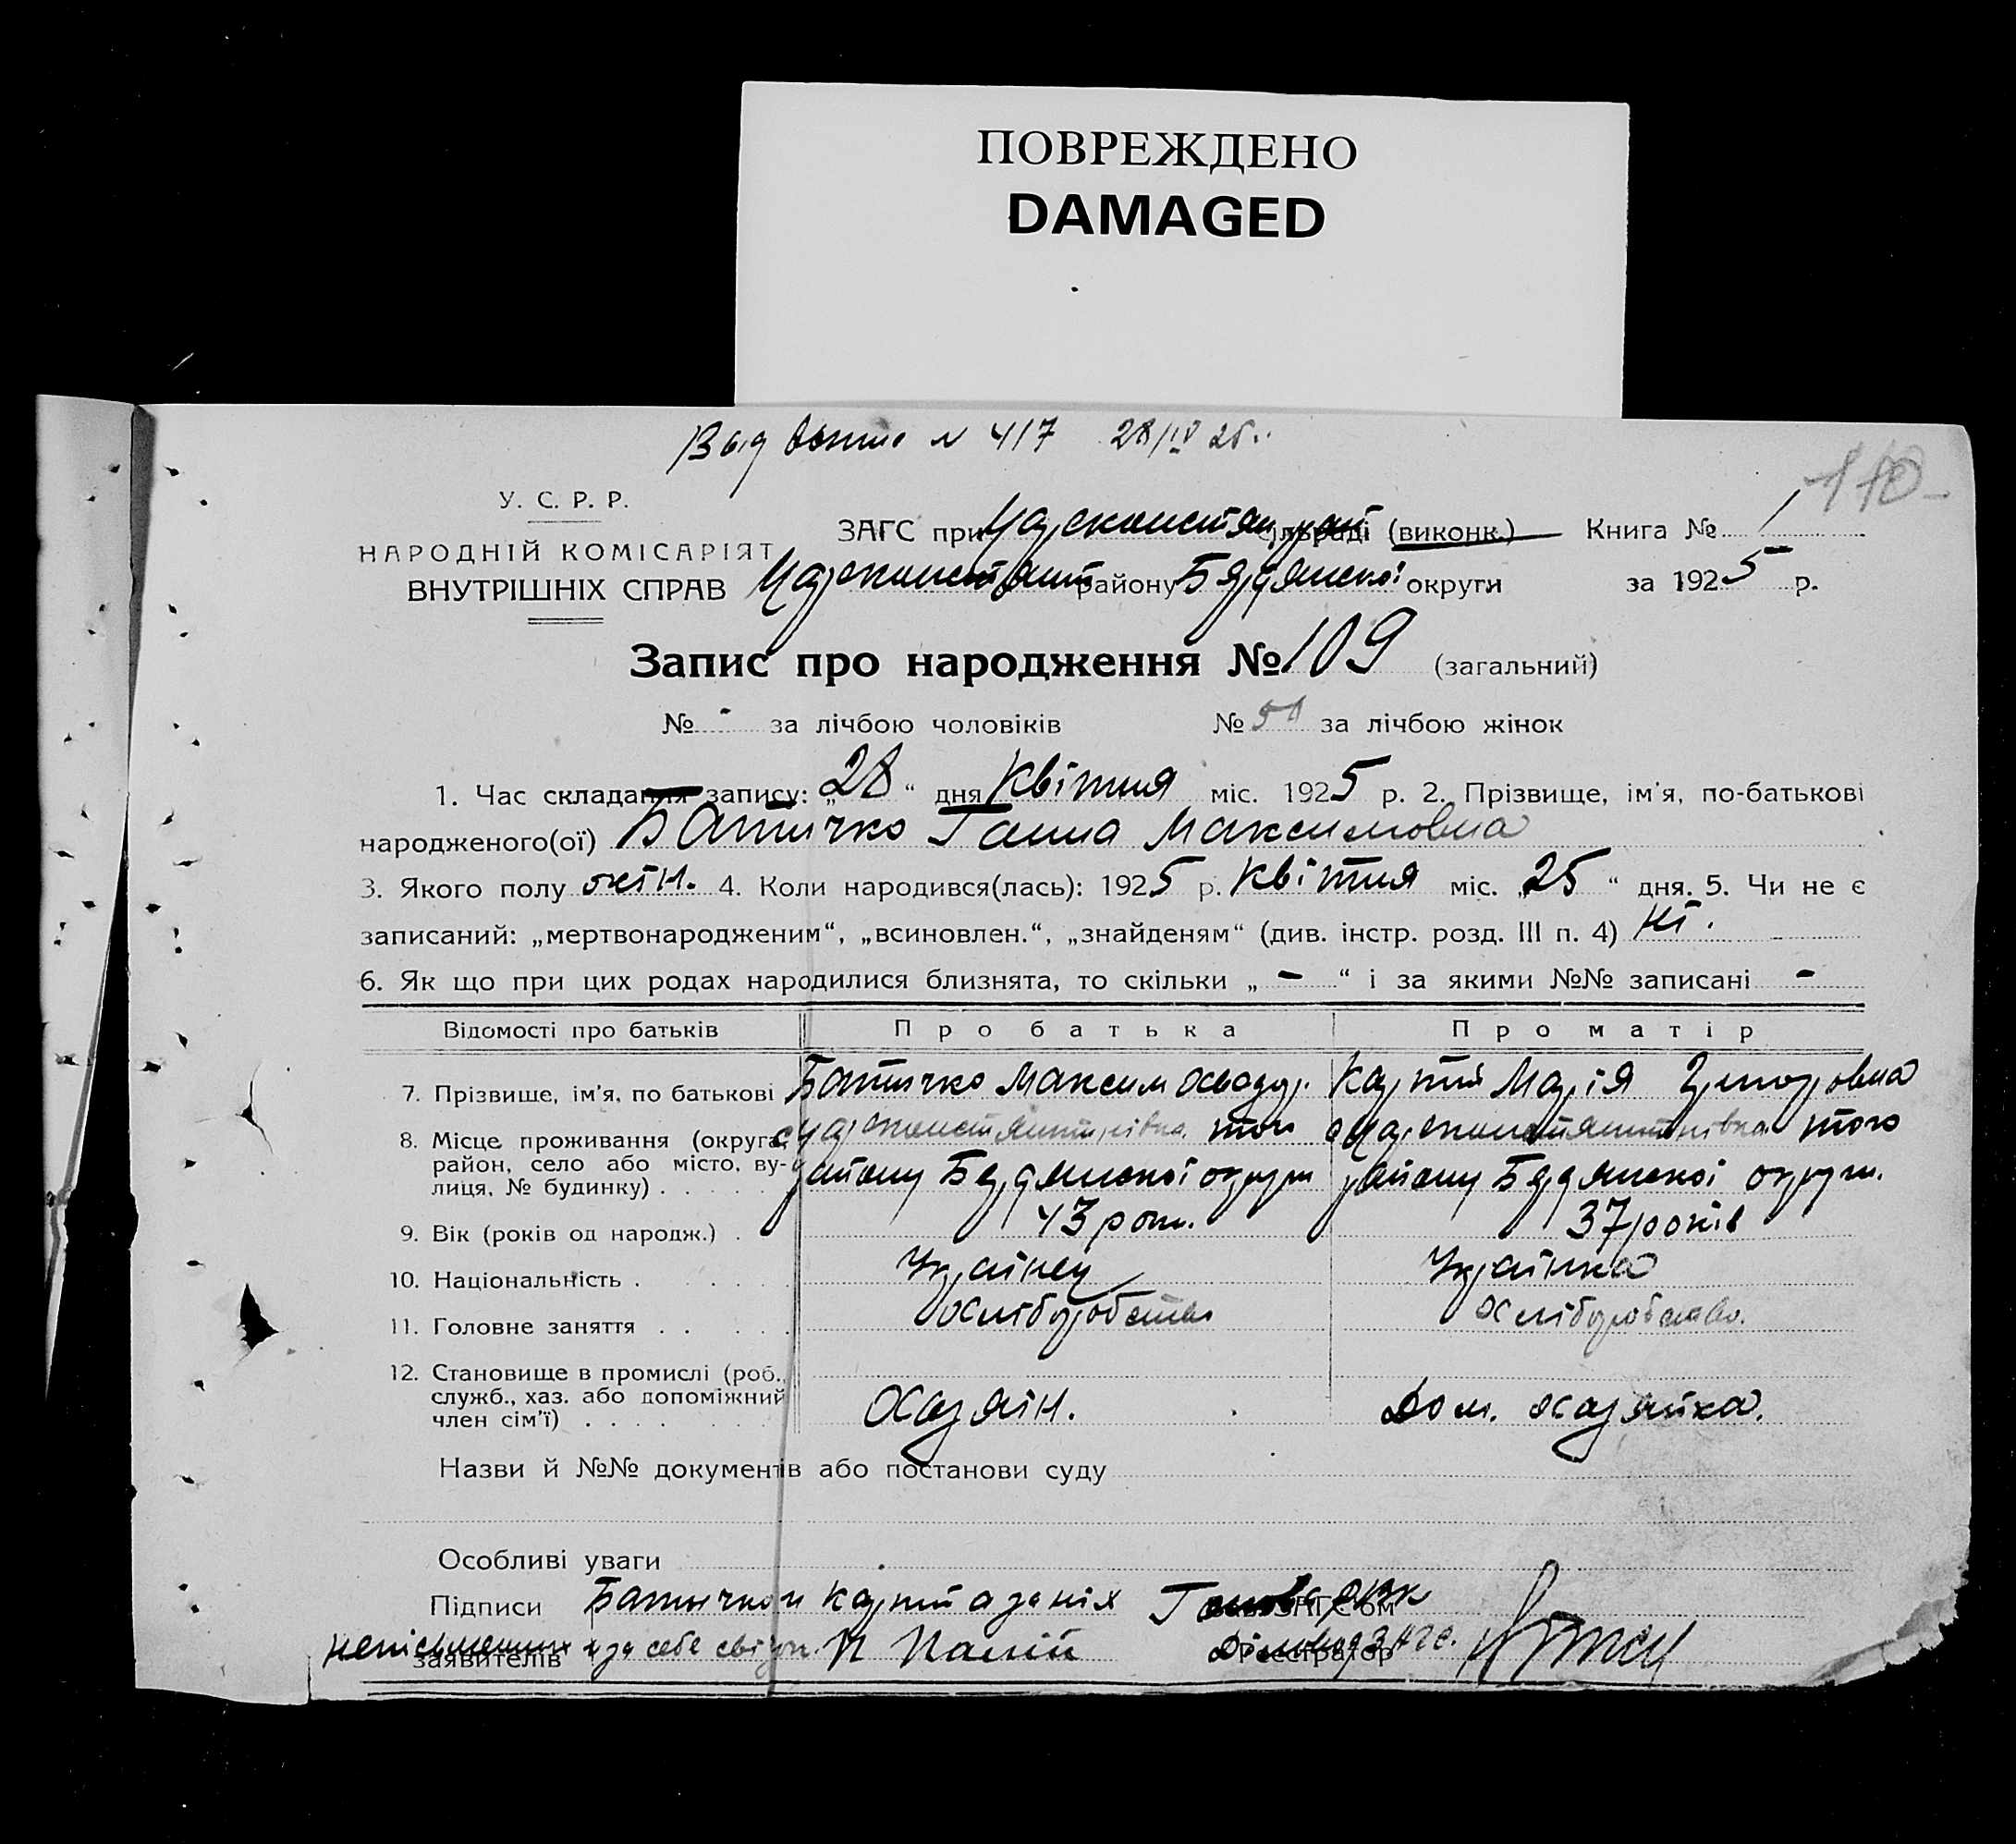 ПОВРЕЖДЕНО
DAMAGED
№ 417 28/IV 25
110
У. С. Р. Р.
НАРОДНІЙ КОМІСАРІЯТ
ВНУТРІШНІХ СПРАВ
ЗАГС при Царсконстян сільраді (виконк.) Книга № 1
Царсконстянт району Бердянської округи за 1925 р.
Запис про народження № 109 (загальний)
№ - за лічбою чоловіків № 50 за лічбою жінок
1. Час складання запису: „28“ дня Квітня міс. 1925 р. 2. Прізвище, ім'я, по-батькові
народженого(ої) Батичко Ганна Максимовна
3. Якого полу жін. 4. Коли народився(лась): 1925 р. Квітня міс. „25“ дня. 5. Чи не є
записаний: „мертвонародженим“, „всиновлен.“, „знайденям“ (див. інстр. розд. III п. 4) ні.
6. Як що при цих родах народилися близнята, то скільки „-“ і за якими №№ записані -
Відомості про батьків Про батька Про матір
7. Прізвише, ім'я, по батькові Батичко Максим Карпій Марія Григоровна
8. Місце проживання (округа, с Царсконстянтинівка того с Царсконстянтинівка того
район, село або місто, ву- району Бердянської округи району Бердянської округи.
лиця, № будинку) . . . . .
9. Вік (років од народж.) . 43 рок. 37 років
10. Національність . . . . Українец Українка
11. Головне заняття . . . . Хліборобство Хліборобство.
12. Становище в промислі (роб.,
служб., хаз. або допоміжний Хазяїн. Дом. хазяйка.
член сім'ї) . . . .
Назви й №№ документів або постанови суду
Особливі уваги
Підписи Батичко и Карпій а за ніх Голова РВК
неписьменних и за себе свідок П Палій Діловод ЗАГС.
заявителів Реєстратор